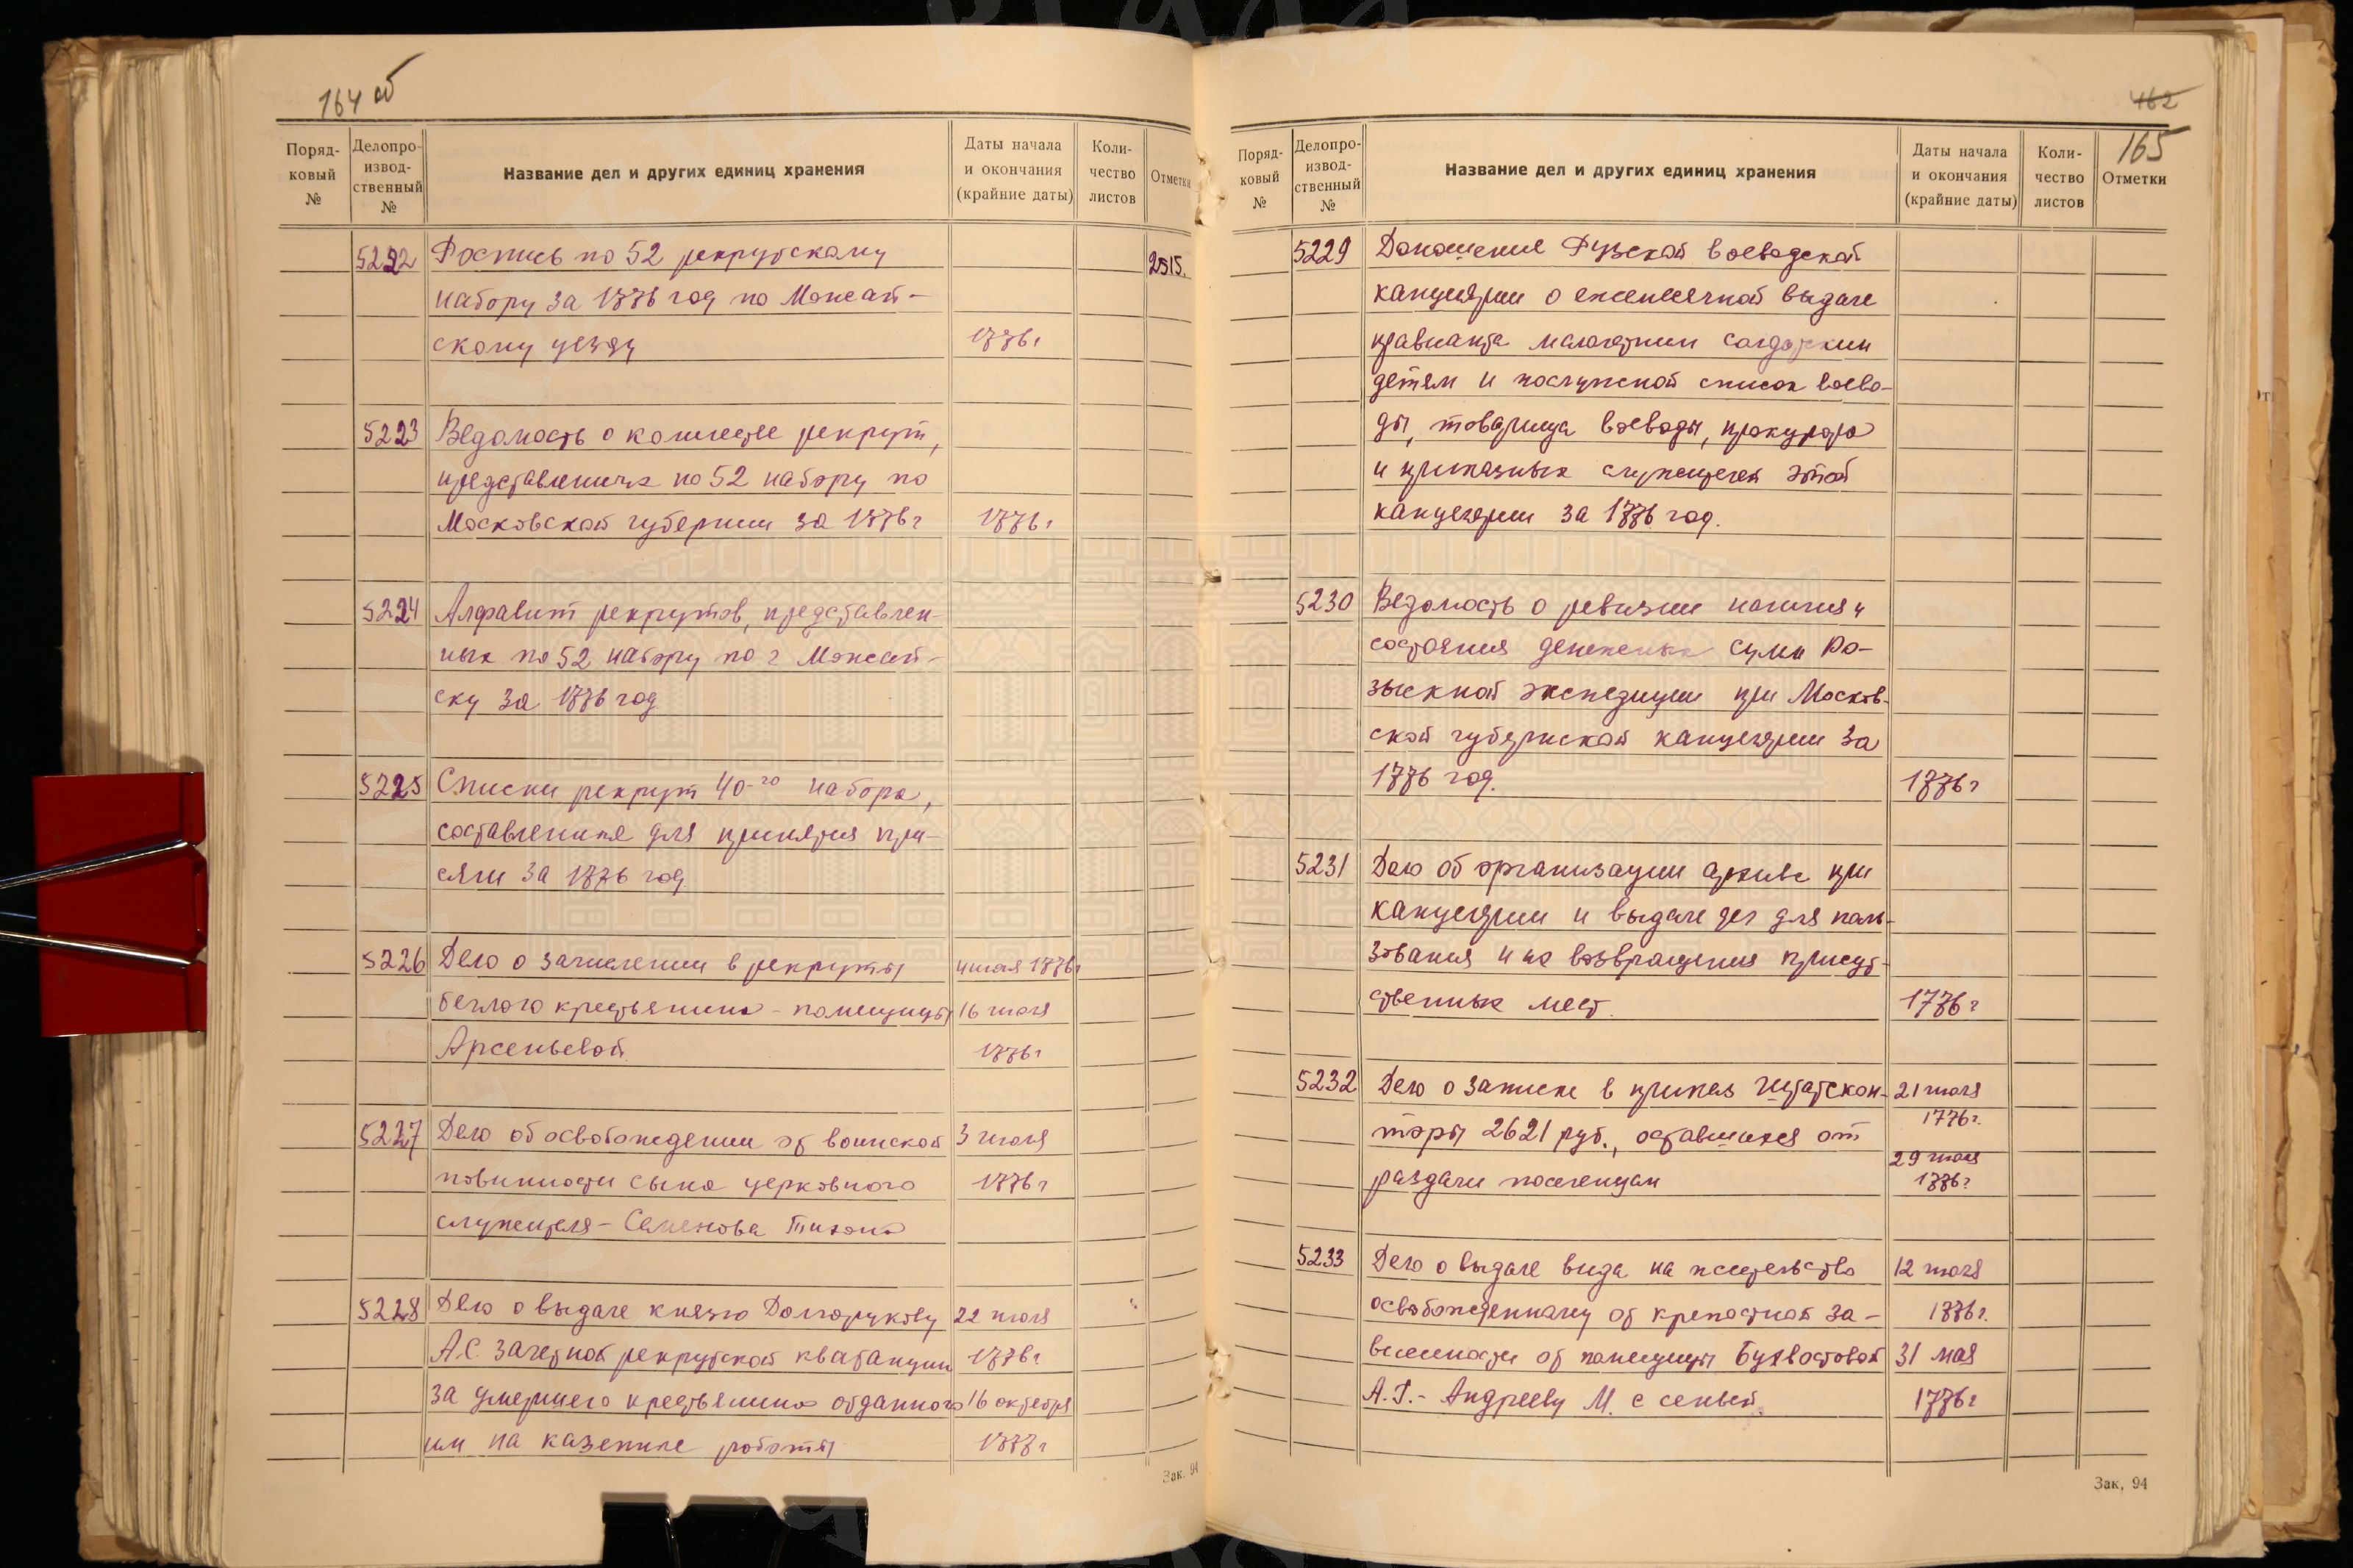 164 об
Поряд-
ковый
№
Делопро-
извод-
ственный
№
Название дел и других единиц хранения
Даты начала
и окончания
(крайние даты)
Коли-
чество
листов
Отметки
5222 Роспись по 52 рекрутскому 2515.
набору за 1776 год поМожай-
скому уезду 1776г
5223 Ведомость о количестве рекрут,
представленных по 52 набору по
Московской губернии за 1776г 1776г
5224 Алфавит рекрутов, представлен-
ных по 52 набору по г Можай-
ску за 1776 год
5225 Списки рекрут 40-го набора,
составленные для принятия при-
сяги за 1776 год
5226 Дело о зачислении в рекруты 4 июля 1776г
беглого крестьянина - помещицы 16 июля
Арсеньевой 1776г
5227 Дело об освобождении от воинской 3 июля
повинности сына церковного 1776г
служителя - Семенова Тихона
5228 Дело о выдаче князю Долгорукову 22 июля
А.С. зачетной рекрутской квитанции 1776г
за умершего крестьянина отданного 16 октября
им на казенные работы 1777г
Зак. 94
462
165
Поряд-
ковый
№
Делопро-
извод-
ственный
№
Название дел и других единиц хранения
Даты начала
и окончания
(крайние даты)
Коли-
чество
листов
Отметки
5229 Доношение Рузской воеводской
канцелярии о ежемесячной выдаче
провианта малолетним солдатским
детям и послужной список воево-
ды, товарища воеводы, прокурора
и приказных служащих этой
канцелярии за 1776 год.
5230 Ведомость о ревизии наличия и
состояния денежных сумм Ро-
зыскной экспедиции при Москов-
ской губернской канцелярии за
1776 год. 1776г
5231 Дело об организации архива при
канцелярии и выдаче дел для поль-
зования и их возвращения присут-
ственных мест. 1776г
5232 Дело о записке в приказ Штатскон- 21 июля
1776г.
торы 2621 руб., оставшихся от
29 июля
раздачи поселенцам 1776г
5233 Дело о выдаче вида на жительство 12 июля
освобожденному от крепостной за- 1776г.
висимости от помещицы Бухвостовой 31 мая
А.Г. - Андрееву М. с семьей. 1776г
Зак. 94